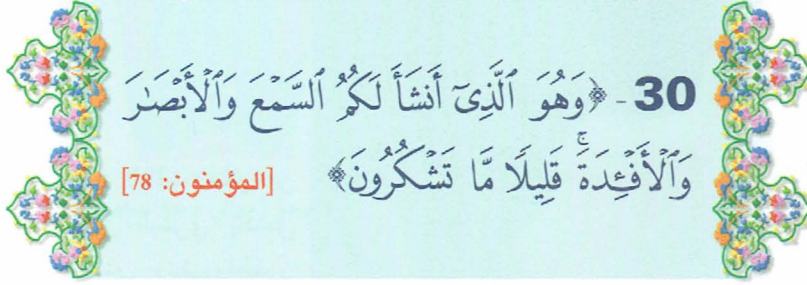 30 - ﴿وَهُوَ ٱلَّذِىٓ أَنشَأَ لَكُمُ ٱلسَّمْعَ وَٱلْأَبْصَـٰرَ
وَٱلْأَفْـِٔدَةَ ۚ قَلِيلًا مَّا تَشْكُرُونَ﴾ [المؤمنون: 78]